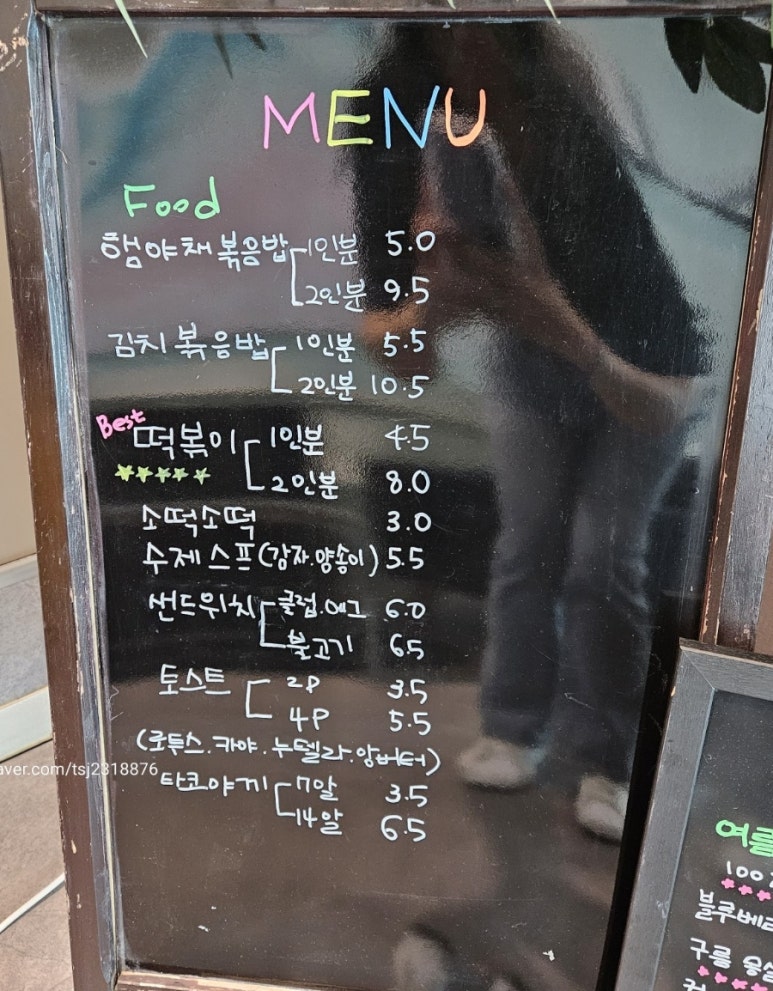 MENU
Food
햄야채볶음밥 1인분 5.0
2인분 9.5
김치볶음밥 1인분 5.5
2인분 10.5
Best
떡볶이 1인분 4.5
2인분 8.0
소떡소떡 3.0
수제스프(감자.양송이) 5.5
샌드위치 클럽.에그 6.0
불고기 6.5
토스트 2P 3.5
4P 5.5
(로투스.카야.누텔라.앙버터)
타코야끼 7알 3.5
14알 6.5
aver.com/tsj2318876
여름
100
블루베리
구름